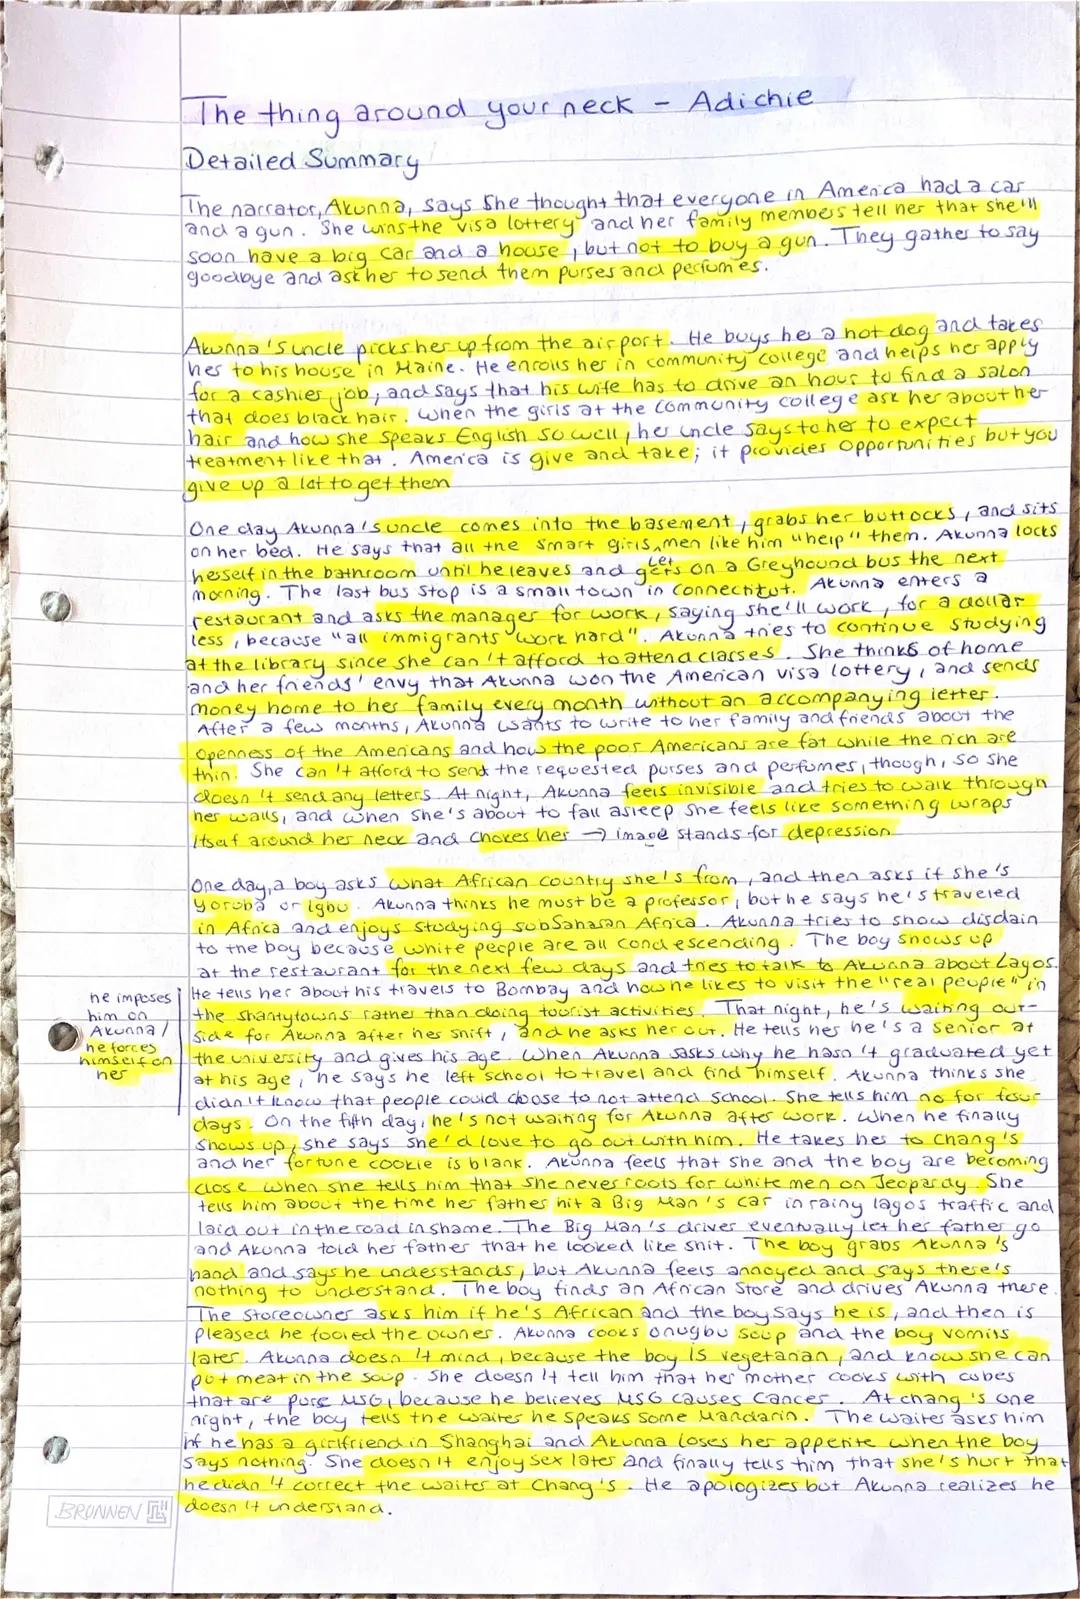 The thing around your neck - Adichie
Detailed Summary
The narrator, Akunna, says she thought that everyone in America had a car
and a gun. She wins the visa lottery and her family members tell her that she'll
soon have a big car and a house, but not to buy a gun. They gather to say
goodbye and ask her to send them purses and perfumes.
Akunna's uncle picks her up from the airport. He buys her a hot dog and takes
her to his house in Maine. He enrolls her in community college and helps her apply
for a cashier job, and says that his wife has to drive an hour to find a salon
that does black hair. When the girls at the community college ask her about her
hair and how she speaks English so well, her uncle says to her to expect
treatment like that. America is give and take; it provides opportunities but you
give up a lot to get them
One day Akunna's uncle comes into the basement, grabs her buttocks, and sits
on her bed. He says that all the smart girls let men like him "help" them. Akunna locks
herself in the bathroom until he leaves and gets on a Greyhound bus the next
morning. The last bus stop is a small town in Connectitut. Akunna enters a
restaurant and asks the manager for work, saying she'll work, for a dollar
less, because "all immigrants work hard". Akunna tries to continue studying
at the library since she can't afford to attend classes. She thinks of home
and her friends' envy that Akunna won the American visa lottery, and sends
money home to her family every month without an accompanying letter.
After a few months, Akunna wants to write to her family and friends about the
openness of the Americans and how the poor Americans are fat while the rich are
thin. She can't afford to send the requested purses and perfumes, though, so she
doesn't send any letters. At night, Akunna feels invisible and tries to walk through
her walls, and when she's about to fall asleep she feels like something wraps
itself around her neck and chokes her → image stands for depression
One day, a boy asks what African country she's from, and then asks if she's
Yoruba or Igbo. Akunna thinks he must be a professor, but he says he's traveled
in Africa and enjoys studying subSaharan Africa. Akunna tries to show disdain
to the boy because white people are all condescending. The boy shows up
at the restaurant for the next few days and tries to talk to Akunna about Lagos.
He tells her about his travels to Bombay and how he likes to visit the "real people" in
the shantytowns rather than doing tourist activities. That night, he's waiting out-
side for Akunna after her shift, and he asks her out. He tells her he's a senior at
the university and gives his age. When Akunna asks why he hasn't graduated yet
at his age, he says he left school to travel and find himself. Akunna thinks she
didn't know that people could choose to not attend school. She tells him no for four
days. On the fifth day, he's not waiting for Akunna after work. When he finally
shows up, she says she'd love to go out with him. He takes her to Chang's
and her fortune cookie is blank. Akunna feels that she and the boy are becoming
close when she tells him that she never roots for white men on Jeopardy. She
tells him about the time her father hit a Big Man's car in rainy lagos traffic and
laid out in the road in shame. The Big Man's driver eventually let her father go
and Akunna told her father that he looked like shit. The boy grabs Akunna's
hand and says he understands, but Akunna feels annoyed and says there's
nothing to understand. The boy finds an African Store and drives Akunna there.
The storeowner asks him if he's African and the boy says he is, and then is
pleased he fooled the owner. Akunna cooks onugbu soup and the boy vomits
later. Akunna doesn't mind, because the boy is vegetarian, and know she can
put meat in the soup. She doesn't tell him that her mother cooks with cubes
that are pure MSG, because he believes MSG causes cancer. At chang's one
night, the boy tells the waiter he speaks some Mandarin. The waiter asks him
if he has a girlfriend in Shanghai and Akunna loses her appetite when the boy
says nothing. She doesn't enjoy sex later and finally tells him that she's hurt that
he didn't correct the waiter at Chang's. He apologizes but Akunna realizes he
doesn't understand.
he imposes
him on
Akunna/
he forces
himself on
her
BRUNNEN